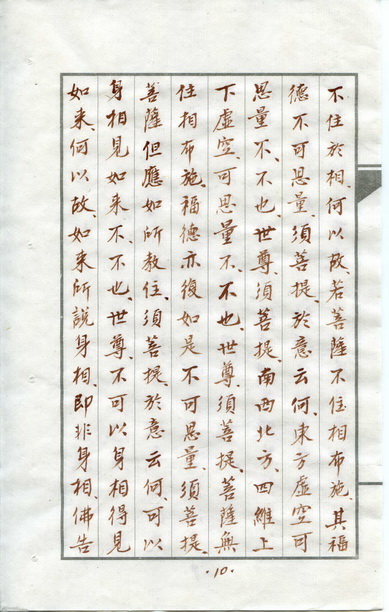 不住於相、何以故、若菩薩不住相布施、其福
德不可思量、須菩提、於意云何、東方虛空可
思量不、不也、世尊、須菩提、南西北方、四維上
下虛空、可思量不、不也、世尊、須菩提、菩薩無
住相布施、福德亦復如是不可思量、須菩提、
菩薩但應如所教住、須菩提、於意云何、可以
身相見如来不、不也、世尊、不可以身相得見
如来、何以故、如来所說身相、即非身相、佛告
·10·